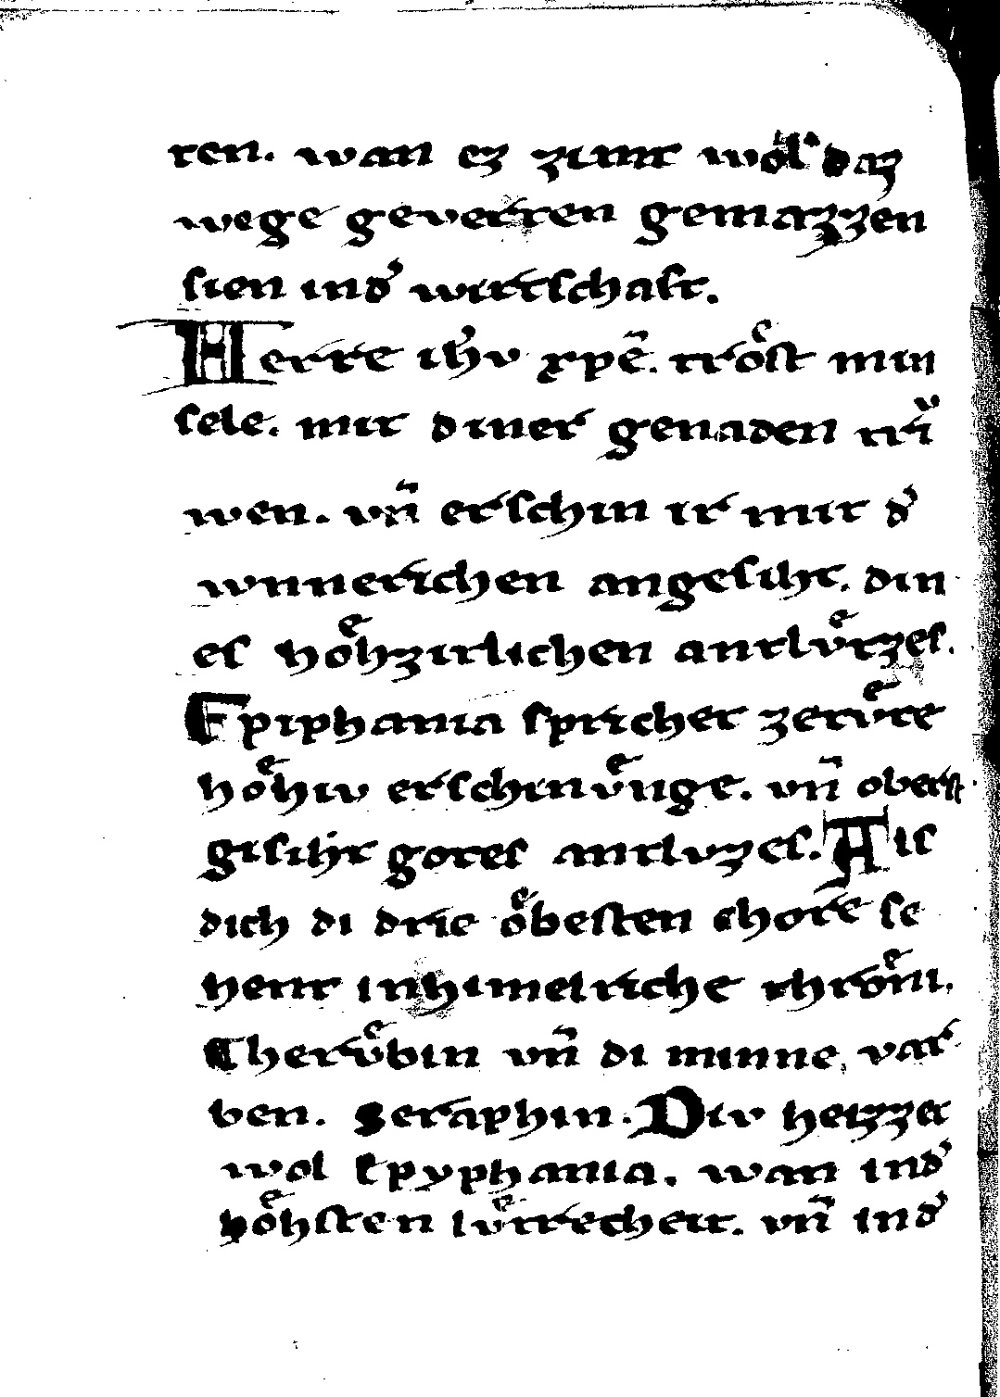 ten. wan ez zimt wol daz
wege geverten gemazzen
sien in d̾ wirtschaft.
Herre ih̾v xpē. troͤst min
sele. mit diner genaden tri̾
wen. vn̄ erschin ir mit d̾
wnnerichen angesiht. din
es hoͤhzitlichen antluͤtzes.
Epiphania sprichet zetuͤte
hoͤhiv erschinuͤnge. vn̄ oberst
gisiht gotes antluzes. Als
dich di drie oͤbesten chore se
hent inhimelriche throͤni.
Cheruͤbin vn̄ di minne var
ben. Seraphin. Div heizzet
wol Epyphania. wan in d̾
hoͤhsten luͤtrecheit. vn̄ in d̾